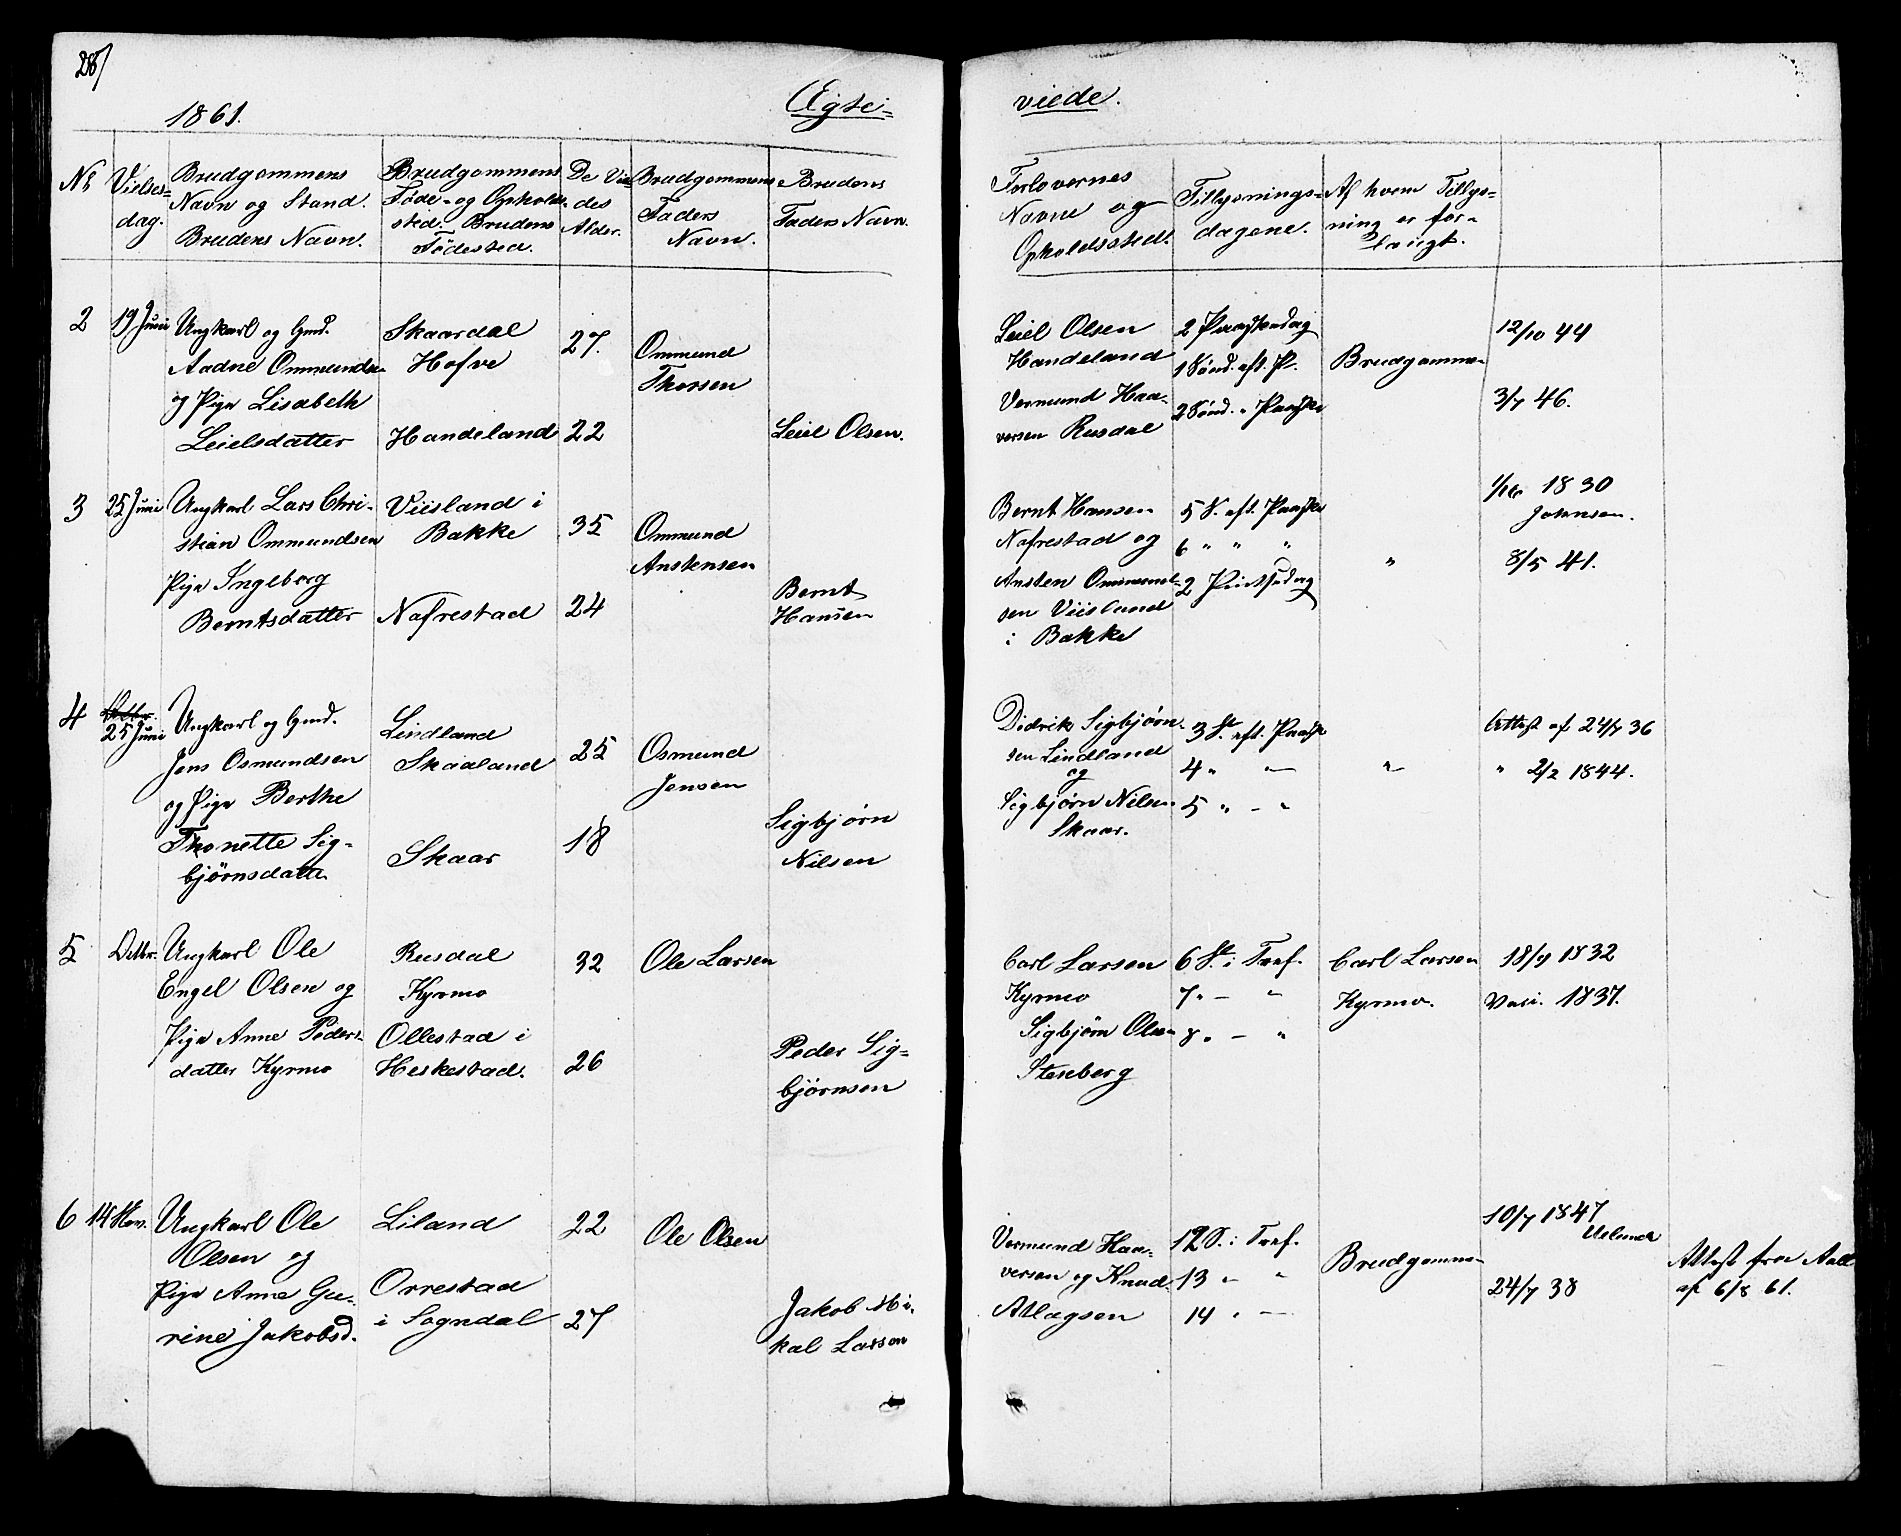 28/
1861.
Ægte-
viede.
No
Vielses-
dag.
Brudgommens
Navn og Stand.
Brudens Navn.
Brudgommens
Føde- og Opholds-
sted. Brudens
Fødested.
De Vie
des
Alder.
Brudgommens
Faders
Navn.
Brudens
Faders Navn.
Forlovernes
Navne og
Opholdssted.
Tillysnings-
dagene.
Af hvem Tillys-
ning er for-
langt.
2
19 Juni
Ungkarl og Gmd.
Aadne Ommundsen
og Pige Lisabeth
Leielsdatter
Skaardal
Hofve
Handeland
27.
22
Ommund
Thorsen
Leiel Olsen.
Leiel Olsen
Handeland
Vermund Haa-
versen Rusdal
2 Paaskedag
1 Sønd. eft. P.
2 Sønd. " Paaske
Brudgommen
12/10 44
3/7 46.
3
25 Juni
Ungkarl Lars Chri-
stian Ommundsen
Pige Ingeborg
Berntsdatter
Viisland i
Bakke
Nafrestad
35
24
Ommund
Anstensen
Bernt
Hansen
Bernt Hansen
Nafrestad og
Ansten Ommund-
sen Viisland
i Bakke
5 S. eft. Paaske
6 " " "
2 Pintsedag
"
1830
Johnsen.
8/5 41.
4
25 Juni
Ungkarl og Gmd.
Jens Osmundsen
og Pige Berthe
Thonette Sig-
bjørnsdatter
Lindland
Skaaland
Skaar
25
18
Osmund
Jensen
Sigbjørn
Nilsen
Didrik Sigbjørn-
sen Lindland
og
Sigbjørn Nilsen
Skaar.
3 S. eft. Paaske
4 " —
5 " - "
"
Attest af 24/7 36
" 2/2 1844.
5
Octbr.
Ungkarl Ole
Engel Olsen og
Pige Anne Peders-
datter Kyrmo
Rusdal
Kyrmo
Ollestad i
Heskestad.
32
26
Ole Larsen
Peder Sig-
bjørnsen
Carl Larsen
Kyrmo
Sigbjørn Olsen
Steneberg
6 S. i Tref.
7 " — "
8 " — "
Carl Larsen
Kyrmo.
18/9 1832
Vasi. 1837.
6
14 Nov.
Ungkarl Ole
Olsen og
Pige Anne Gu-
rine Jakobsd.
Liland
Orrestad
i Sogndal
22
27
Ole Olsen
Jakob Mi-
kal Larsen
Vermund Haa-
versen og Knud
Atlagsen
12 S. i Tref.
13 " "
14 " —
Brudgommen
10/7 1847
24/7 38
Attest fra Aall
af 6/8 61.